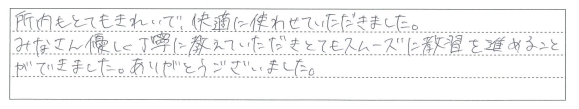 所内もとてもきれいで、快適に使わせていただきました。
みなさん優しく丁寧に教えていただきとてもスムーズに教習を進めること
ができました。ありがとうございました。